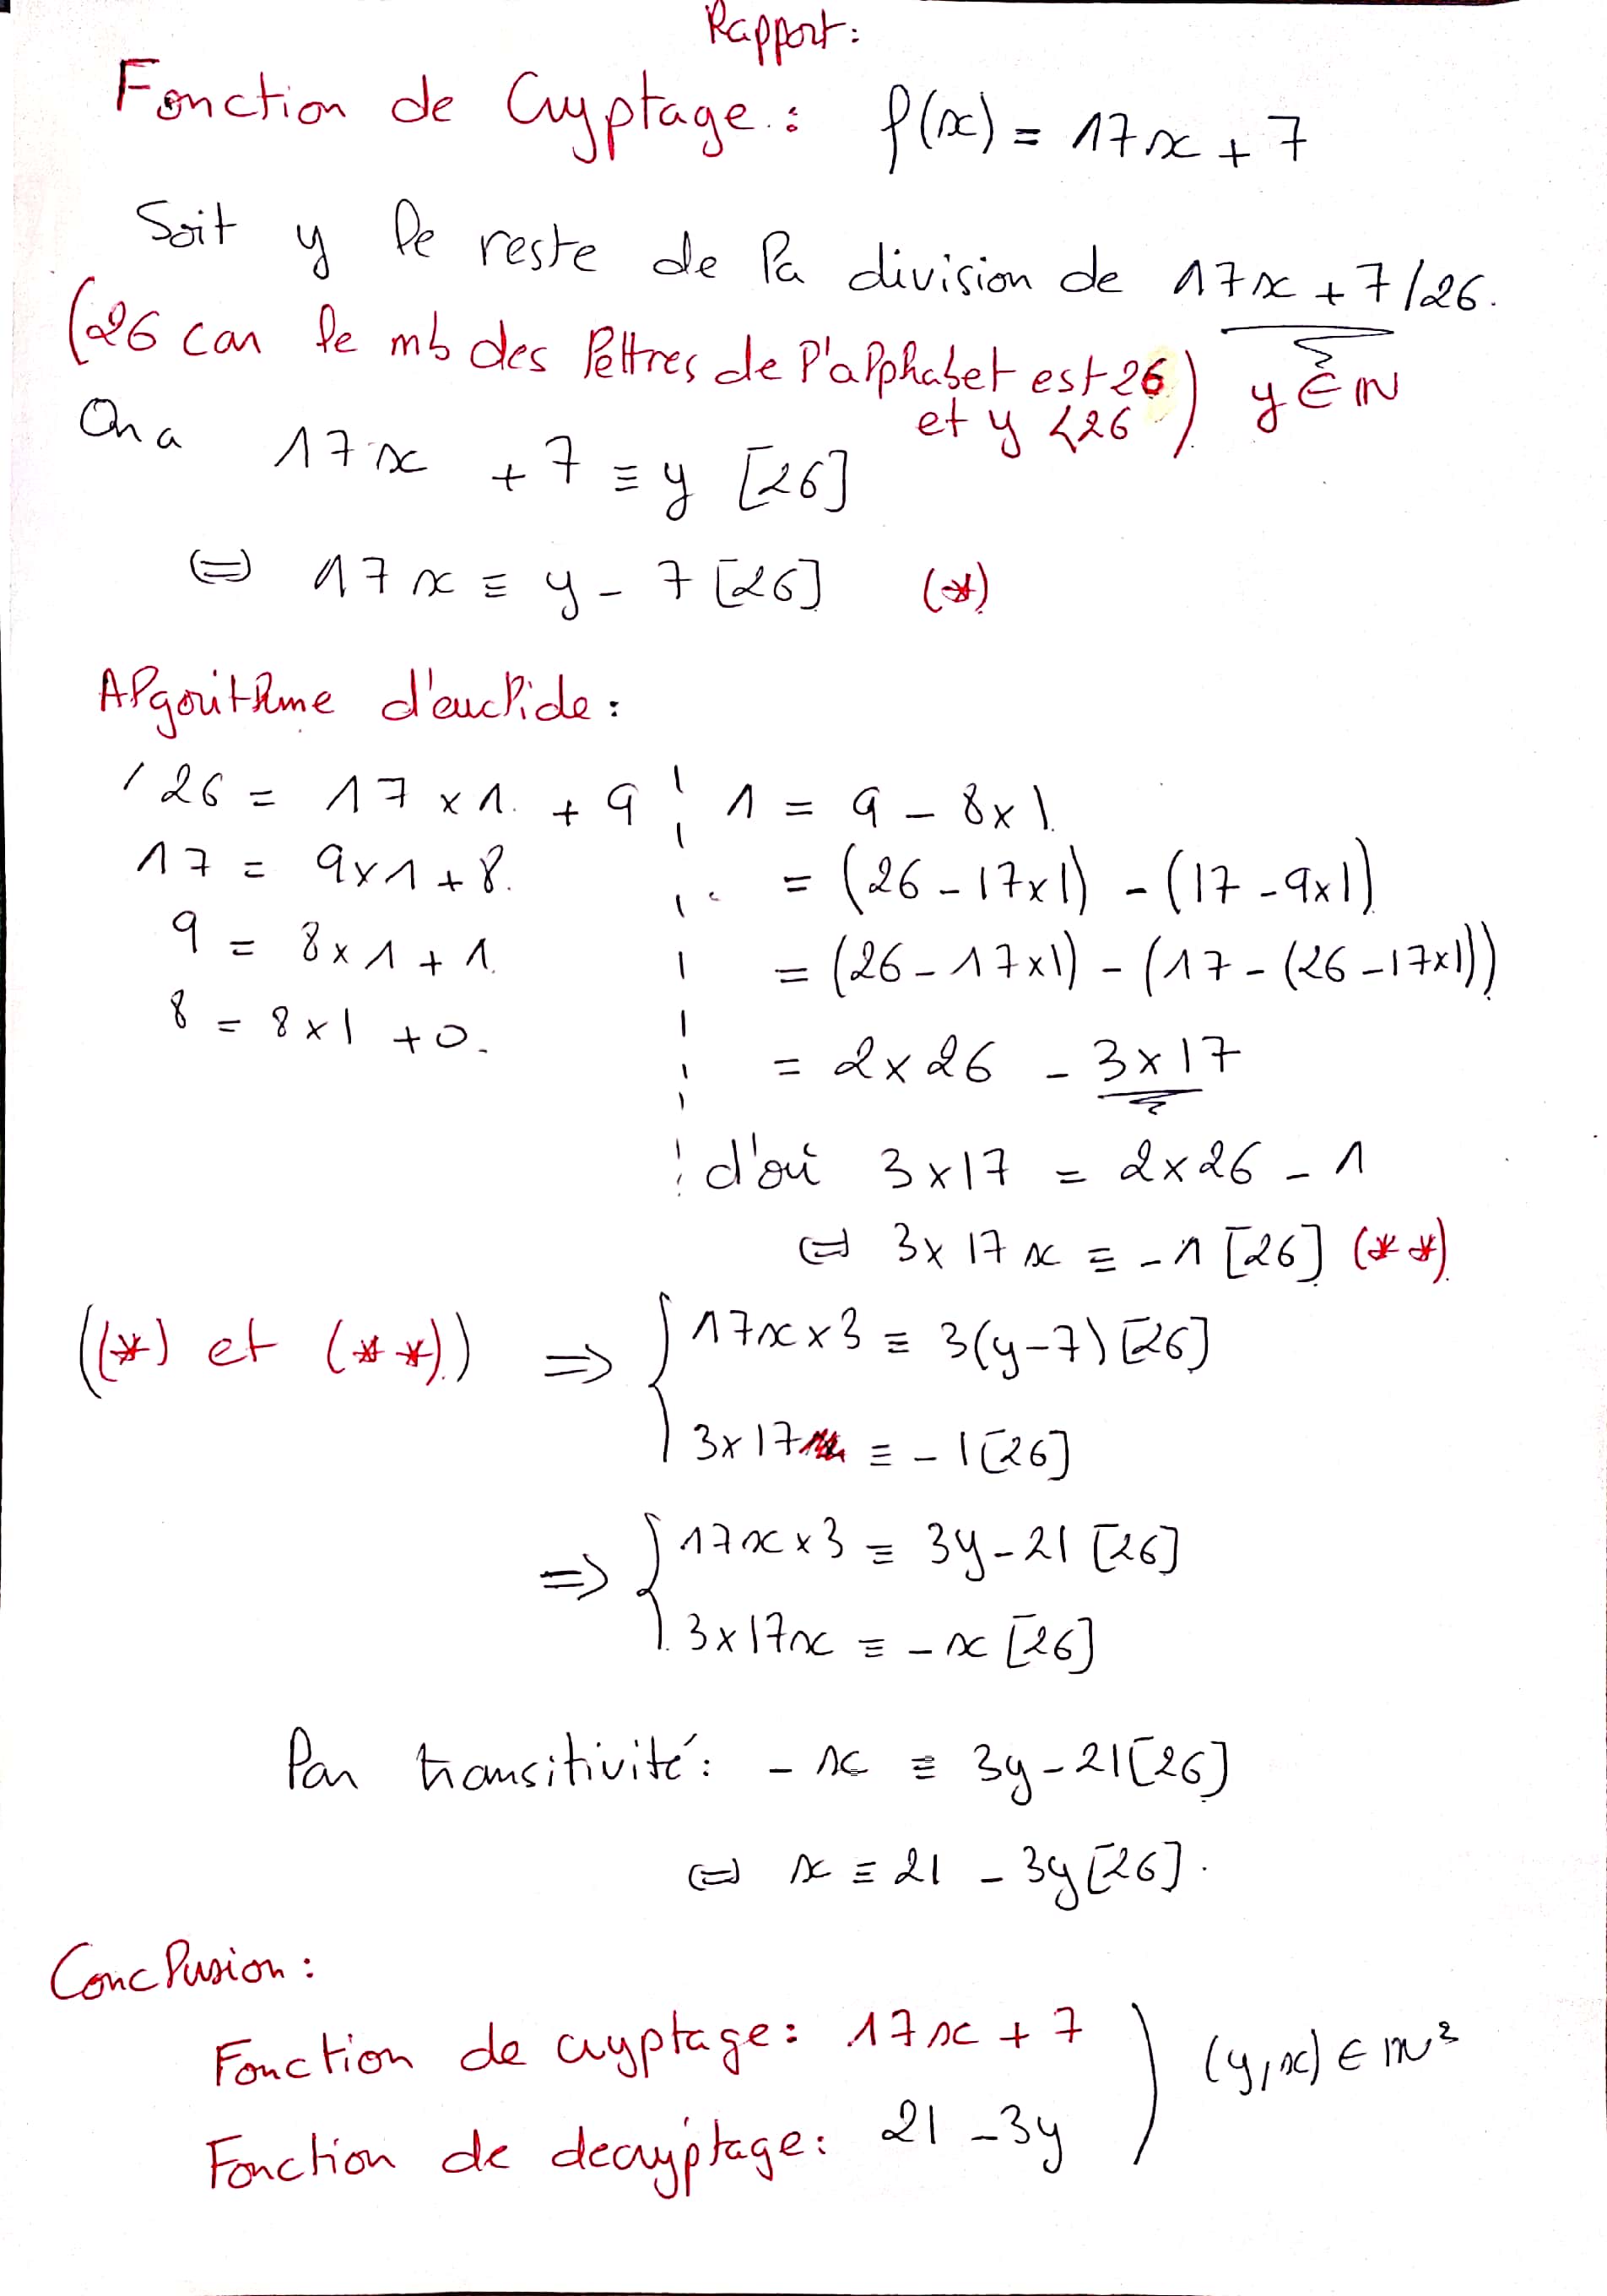 Rapport:
Fonction de Cryptage : f(x) = 17x + 7
Soit y le reste de la division de 17x + 7/26.
(26 car le nb des lettres de l'alphabet est 26 et y < 26) y ∈ IN
On a 17x + 7 ≡ y [26]
⇔ 17x ≡ y - 7 [26] (*)
Algorithme d'euclide :
26 = 17 x 1. + 9
17 = 9x1 + 8.
9 = 8x1 + 1.
8 = 8x1 + 0.
1 = 9 - 8x1.
= (26 - 17x1) - (17 - 9x1)
= (26 - 17x1) - (17 - (26 - 17x1))
= 2x26 - 3x17
d'où 3x17 = 2x26 - 1
⇔ 3x17x ≡ -1 [26] (**)
((*) et (**)) ⇒ { 17x x 3 ≡ 3(y-7) [26]
3x17 ≡ -1 [26]
⇒ { 17x x 3 ≡ 3y - 21 [26]
3x17x ≡ -x [26]
Par transitivité : -x ≡ 3y - 21 [26]
⇔ x ≡ 21 - 3y [26].
Conclusion :
Fonction de cryptage : 17x + 7
Fonction de decryptage : 21 - 3y
) (y,x) ∈ IN²